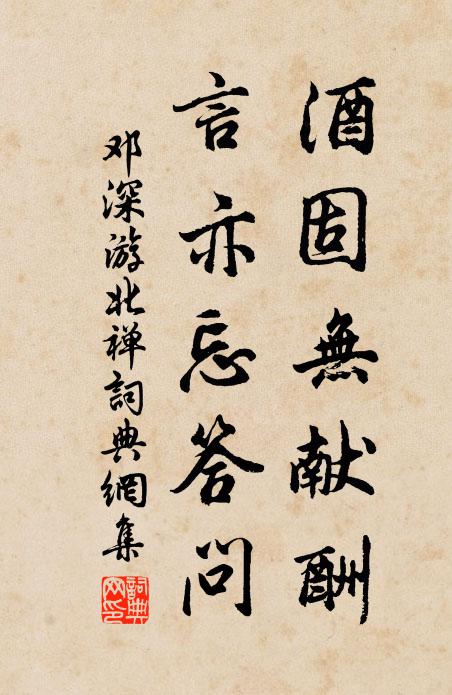 酒固無献酬
言亦忘答问
邓深游北禅詞典網集
詞典網印